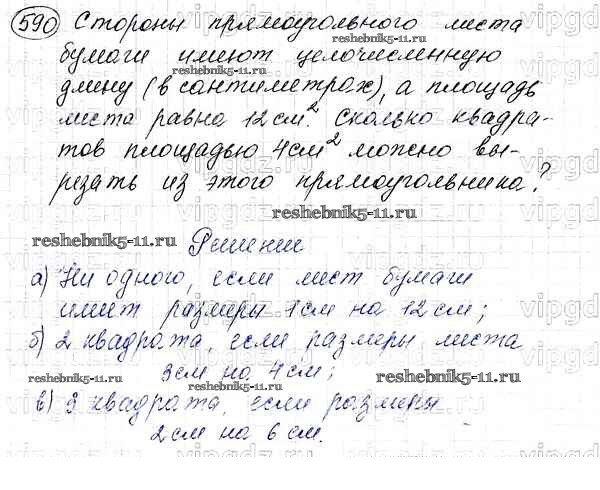 590 Стороны прямоугольного листа
бумаги имеют целочисленную
reshebnik5-11.ru
длину (в сантиметрах), а площадь
листа равна 12 см². Сколько квадра-
тов площадью 4 см² можно вы-
резать из этого прямоугольника?
reshebnik5-11.ru
reshebnik5-11.ru Решение
а) Ни одного, если лист бумаги
имеет размеры 1 см на 12 см;
б) 2 квадрата, если размеры листа
3 см на 4 см;
reshebnik5-11.ru reshebnik5-11.ru
в) 3 квадрата, если размеры
2 см на 6 см.